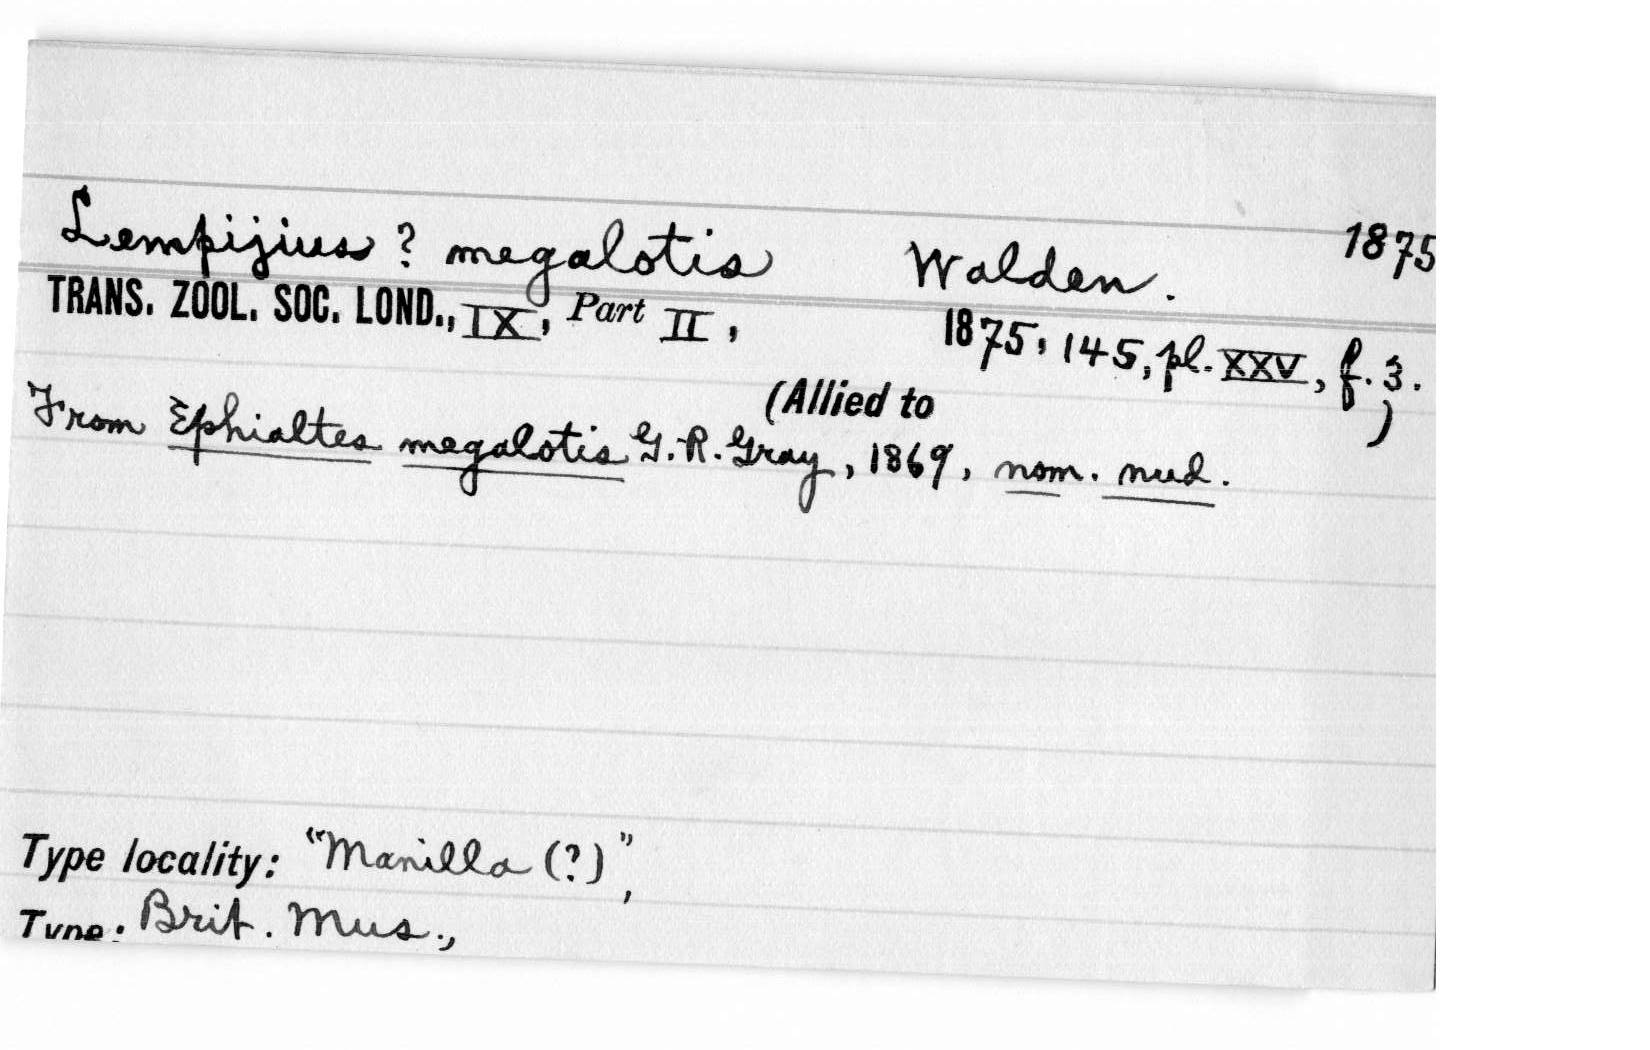 Lempijius ? megalotis Walden. 1875
TRANS. ZOOL. SOC. LOND., IX, Part II, 1875, 145, pl. XXV, f. 3.
(Allied to )
From Ephialtes megalotis G. R. Gray, 1869, nom. nud.
Type locality: "Manilla (?)",
Type: Brit. Mus.,